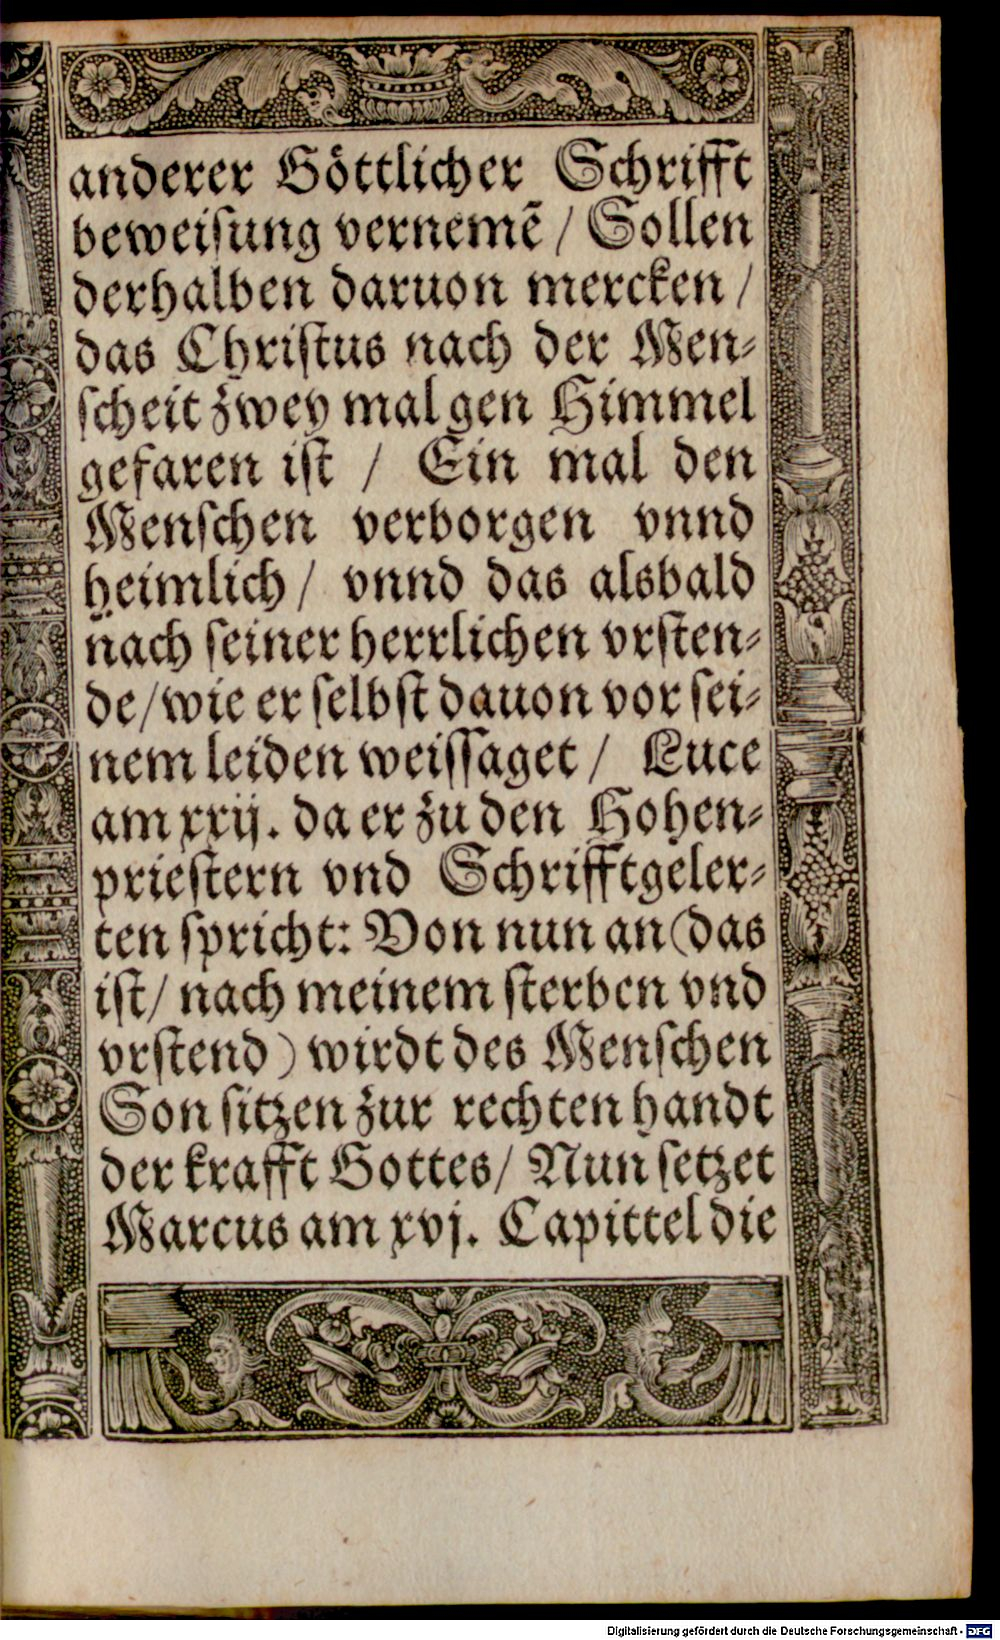 anderer Göttlicher Schrifft
beweisung vernemē / Sollen
derhalben daruon mercken /
das Christus nach der Men-
scheit zwey mal gen Himmel
gefaren ist / Ein mal den
Menschen verborgen vnnd
heimlich / vnnd das alsbald
nach seiner herrlichen vrsten-
de / wie er selbst dauon vor sei-
nem leiden weissaget / Luce
am xxij. da er zu den Hohen-
priestern vnd Schrifftgeler-
ten spricht: Von nun an (das
ist / nach meinem sterben vnd
vrstend) wirdt des Menschen
Son sitzen zur rechten handt
der krafft Gottes / Nun setzet
Marcus am xvj. Capittel die
Digitalisierung gefördert durch die Deutsche Forschungsgemeinschaft - DFG